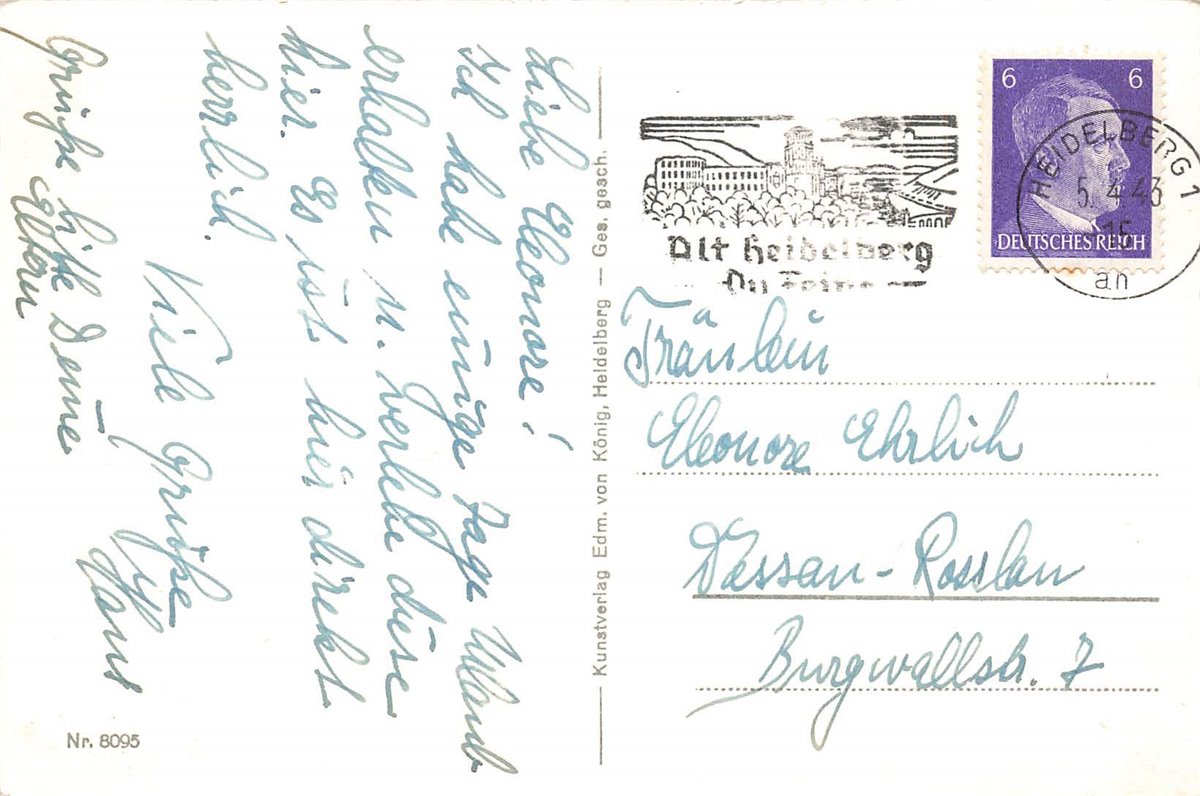 Liebe Eleonore!
Ich habe einige Tage Urlaub
erhalten u. verlebe diese
hier. Es ist hier direkt
herrlich.
Viele Grüße
Hans
Grüße bitte Deine
Eltern
Nr. 8095
Kunstverlag Edm. von König, Heidelberg — Ges. gesch.
Alt Heidelberg
Du Feine
6 6
DEUTSCHES REICH
HEIDELBERG 1
5.4.43
15
an
Fräulein
Eleonore Ehrlich
Dessau-Rosslau
Burgwallstr. 7